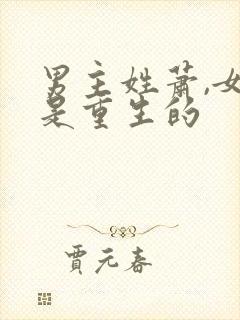 男主姓萧,女
是重生的
贾元春